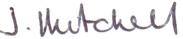 J. Mitchell